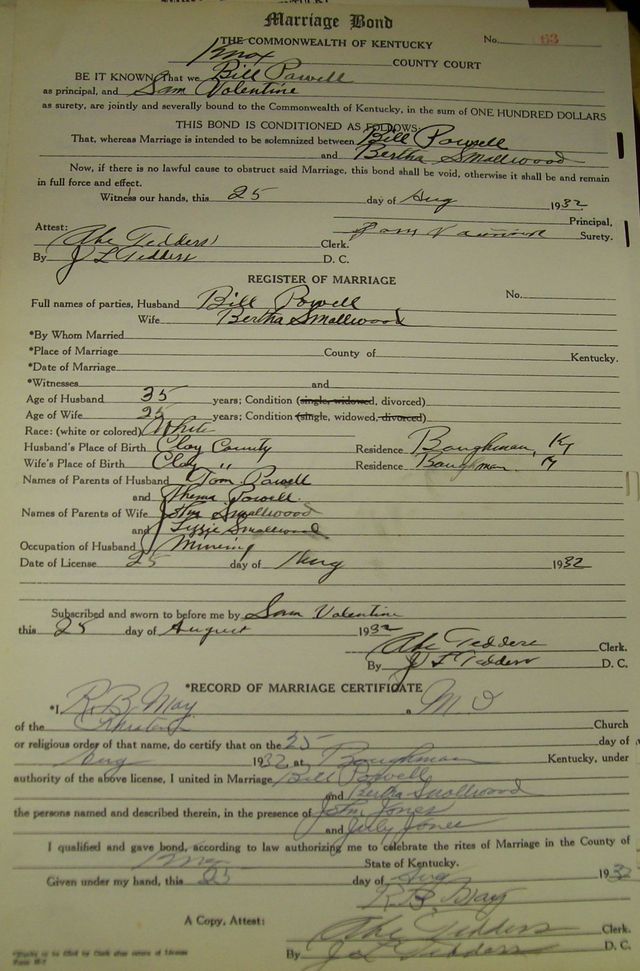 Marriage Bond
THE COMMONWEALTH OF KENTUCKY No. 63
Knox COUNTY COURT
BE IT KNOWN, That we Bill Powell
as principal, and Sam Valentine
as surety, are jointly and severally bound to the Commonwealth of Kentucky, in the sum of ONE HUNDRED DOLLARS
THIS BOND IS CONDITIONED AS FOLLOWS:
That, whereas Marriage is intended to be solemnized between Bill Powell
and Bertha Smallwood
Now, if there is no lawful cause to obstruct said Marriage, this bond shall be void, otherwise it shall be and remain
in full force and effect.
Witness our hands, this 25 day of Aug 1932
Principal,
Attest: Sam Surety.
Abe Tedders Clerk.
By J L Tedders D. C.
REGISTER OF MARRIAGE
Full names of parties, Husband Bill Powell No.
Wife Bertha Smallwood
*By Whom Married
*Place of Marriage County of Kentucky.
*Date of Marriage
*Witnesses and
Age of Husband 35 years; Condition (single, widowed, divorced)
Age of Wife 25 years; Condition (single, widowed, divorced)
Race: (white or colored) White
Husband's Place of Birth Clay County Residence Baughman, Ky
Wife's Place of Birth Clay " Residence Baughman. Ky
Names of Parents of Husband Tom Powell
and Powell
Names of Parents of Wife John Smallwood
and Lizzie Smallwood
Occupation of Husband Mining
Date of License 25 day of Aug 1932
Subscribed and sworn to before me by Sam Valentine
this 25 day of August 1932
Abe Tedders Clerk.
By J L Tedders D. C.
*RECORD OF MARRIAGE CERTIFICATE
*I R. B. May a M
of the Christian Church
or religious order of that name, do certify that on the 25 day of
Aug 1932 at Baughman Kentucky, under
authority of the above license, I united in Marriage Bill Powell
and Bertha Smallwood
the persons named and described therein, in the presence of John Jones
and Jones
I qualified and gave bond, according to law authorizing me to celebrate the rites of Marriage in the County of
Knox State of Kentucky.
Given under my hand, this 25 day of Aug 1932
R. B. May
A Copy, Attest: Abe Tedders Clerk.
By J L Tedders D. C.